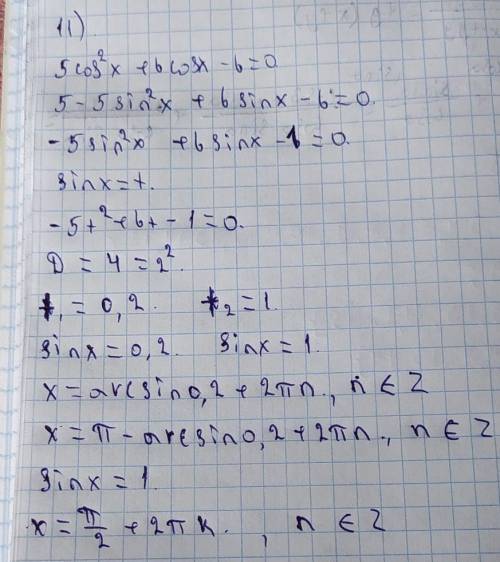 11)
5cos²x + 6cosx - 6 = 0
5 - 5sin²x + 6sinx - 6 = 0.
-5sin²x + 6sinx - 1 = 0.
sinx = t.
-5t² + 6t - 1 = 0.
D = 4 = 2².
t₁ = 0,2. t₂ = 1.
sinx = 0,2. sinx = 1.
x = arcsin0,2 + 2πn., n ∈ Z
x = π - arcsin0,2 + 2πn., n ∈ Z
sinx = 1.
x = π/2 + 2πk. , n ∈ Z